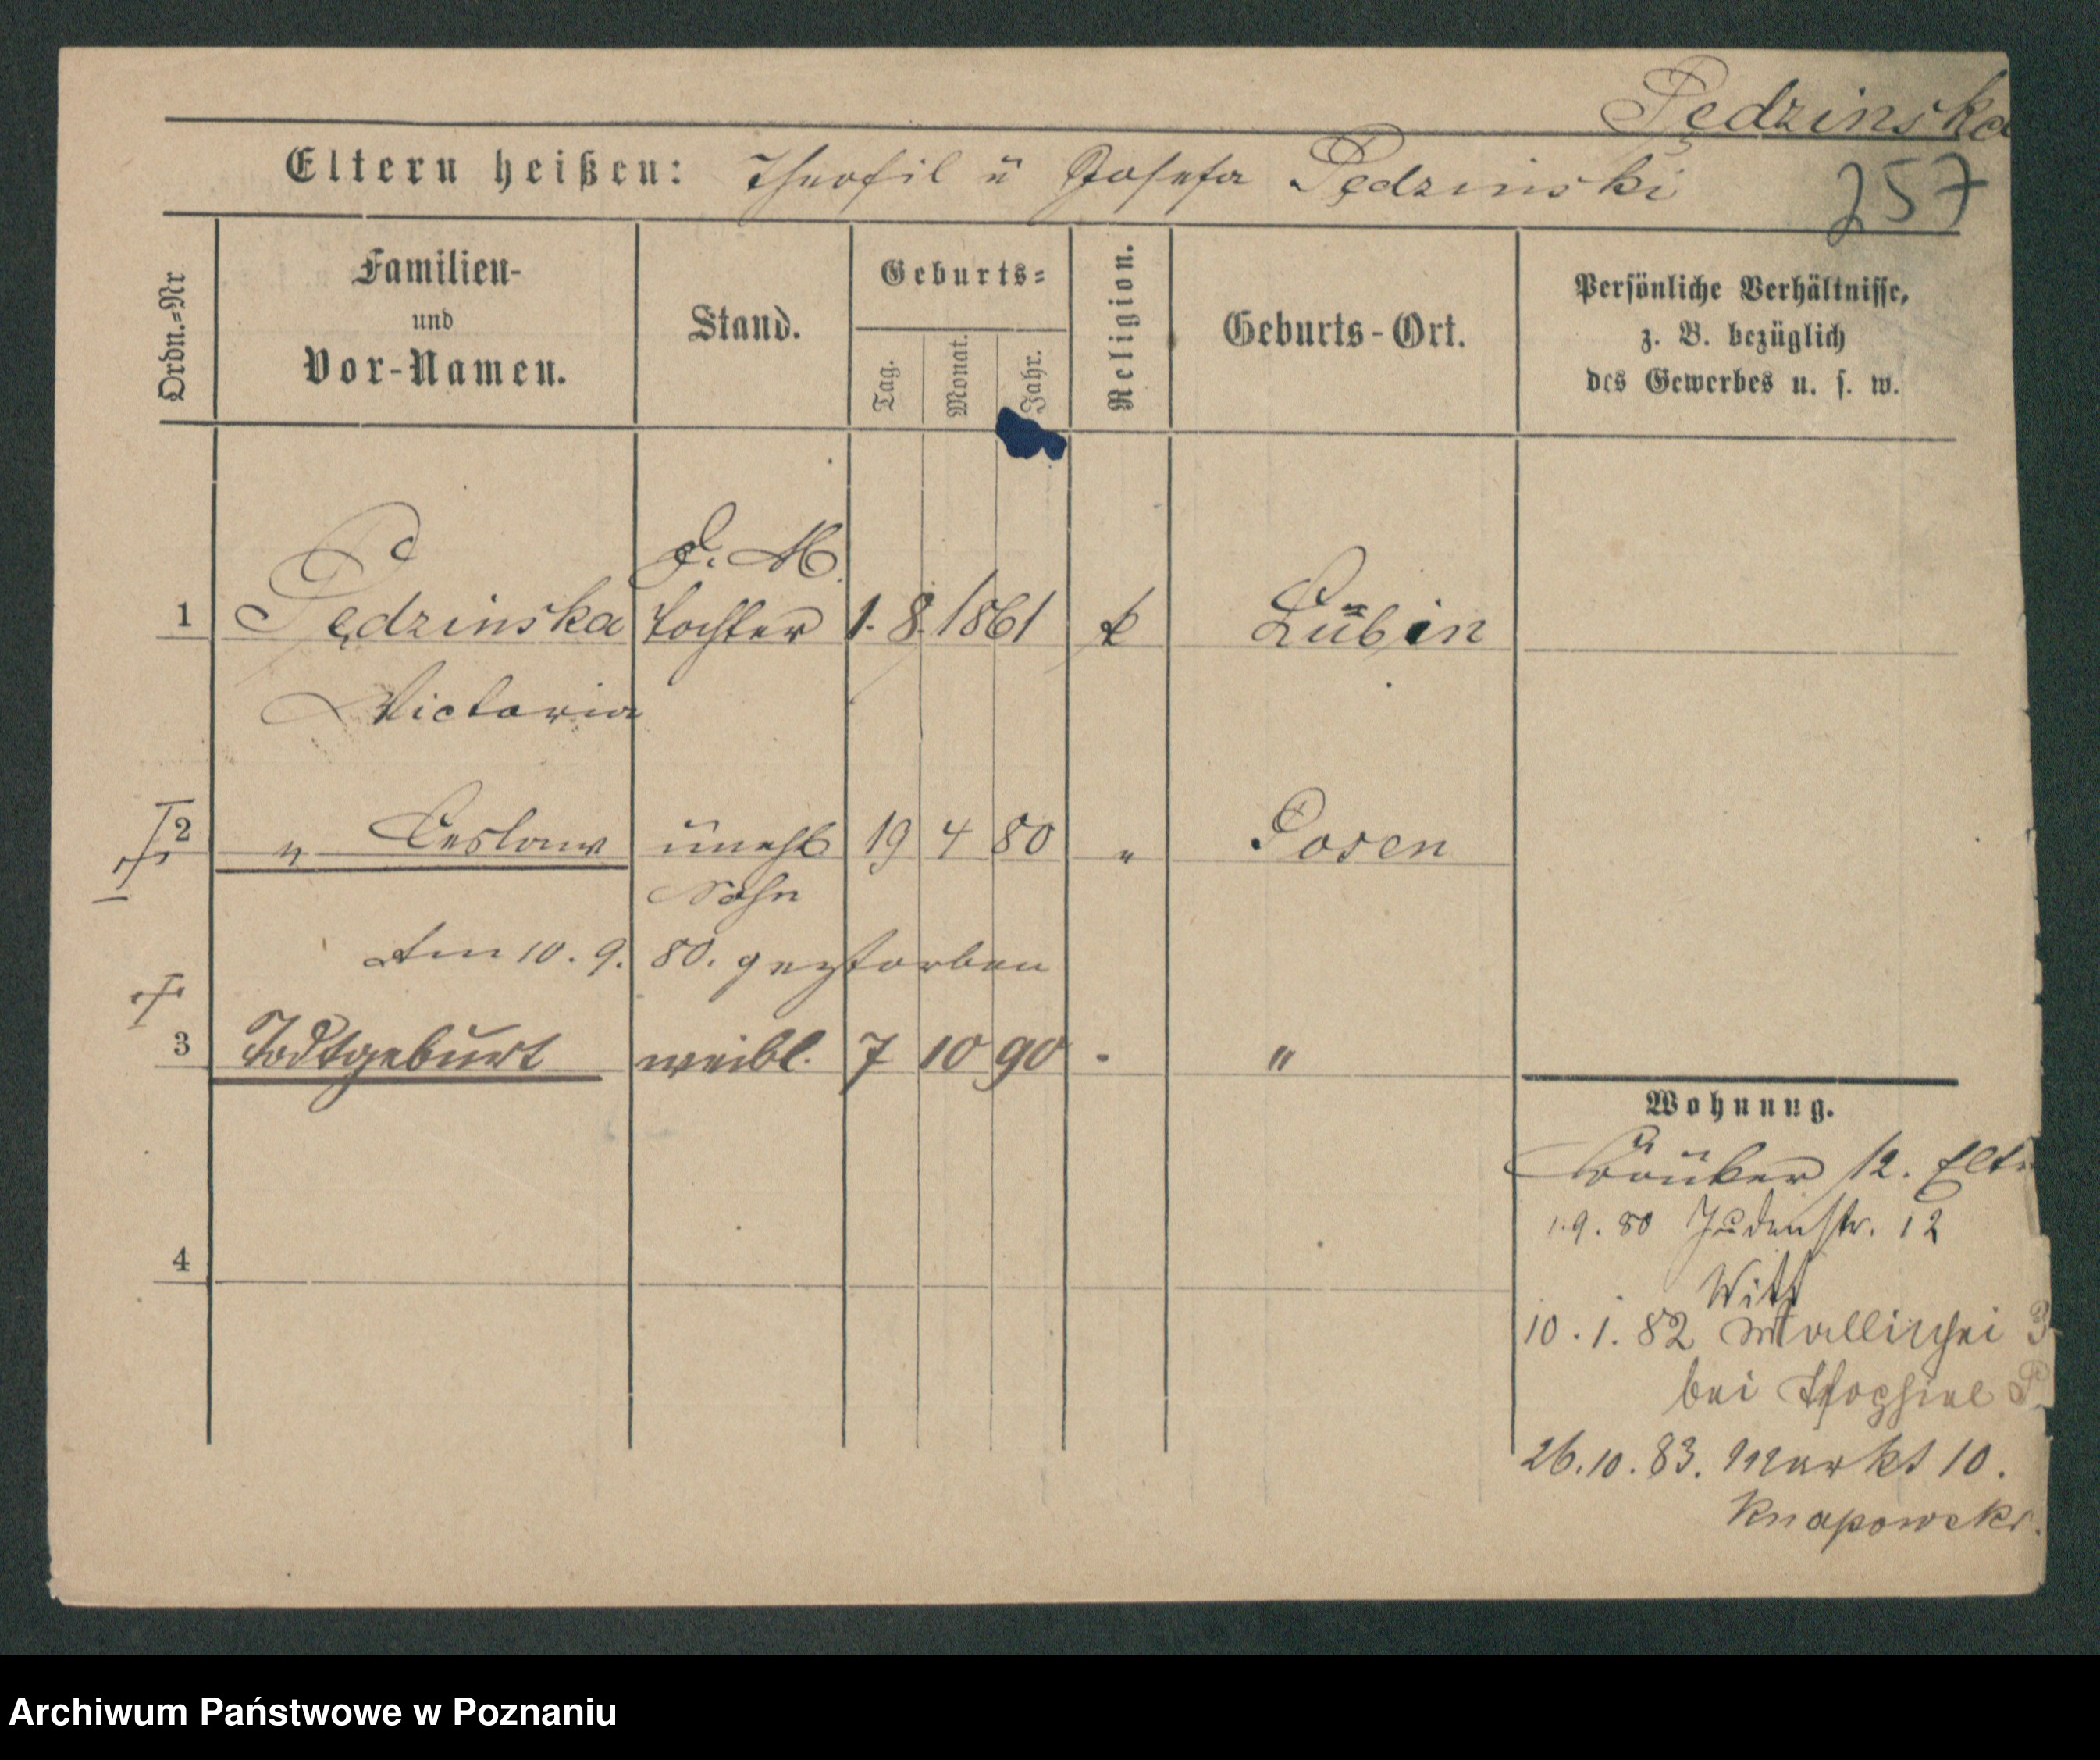 Pędzinska
Eltern heißen: Theofil u Josefa Pędzinski
257
Ordn.=Nr
Familien-
und
Vor-Namen.
Stand.
Geburts=
Tag.
Monat.
Jahr.
Religion.
Geburts-Ort.
Persönliche Verhältnisse,
z. B. bezüglich
des Gewerbes u. s. w.
D. M.
1 Pędzinska Tochter 1. 8. 1861 k Lubin
Victoria
2 " Ceslaw unehl 19 4 80 " Posen
Sohn
Am 10. 9. 80. gestorben
3 Todtgeburt weibl. 7 10 90 "
Wohnung.
12. Elt
1.9.80 Judenstr. 12
Witt
4
10.1.82 Wallischei 3
bei
26.10.83. Markt 10.
Knapowski.
Archiwum Państwowe w Poznaniu